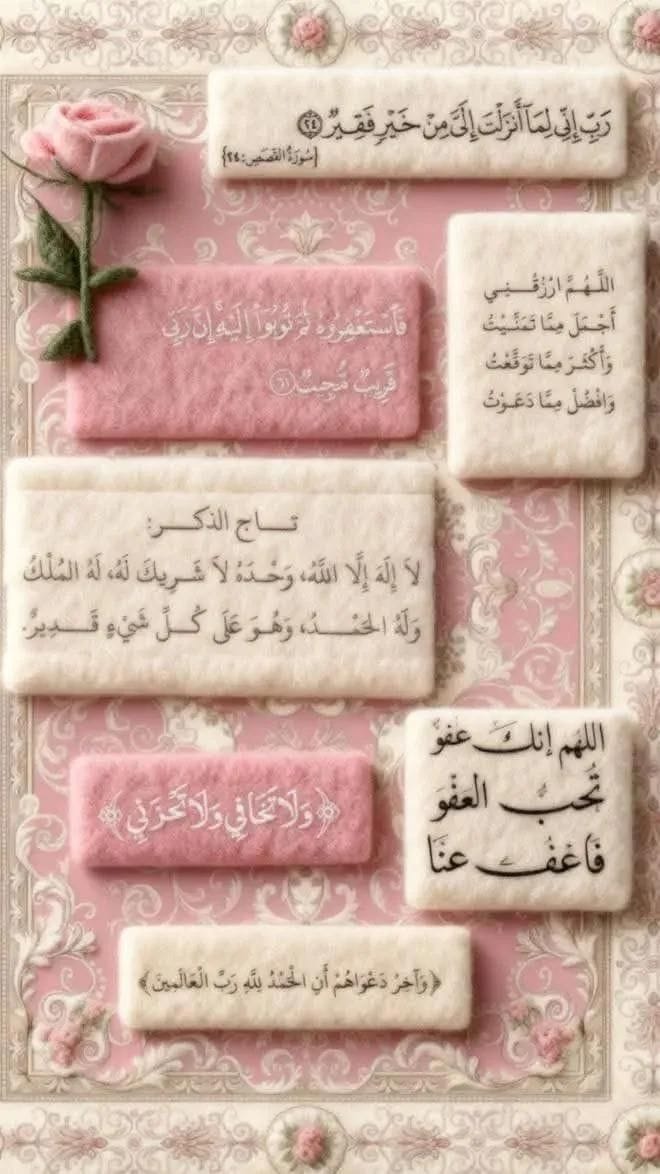 رَبِّ إِنِّي لِمَا أَنزَلْتَ إِلَيَّ مِنْ خَيْرٍ فَقِيرٌ ۝٢٤
{سُورَةُ القَصَصِ: ٢٤}
اللَّهُمَّ ارْزُقْنِي
أَجْمَلَ مِمَّا تَمَنَّيْتُ
وَأَكْثَرَ مِمَّا تَوَقَّعْتُ
وَافْضُلْ مِمَّا دَعَوْتُ
فَاسْتَغْفِرُوهُ ثُمَّ تُوبُوا إِلَيْهِ إِنَّ رَبِّي
قَرِيبٌ مُّجِيبٌ ۝٦١
تاج الذكر:
لاَ إِلَهَ إِلَّا اللَّهُ، وَحْدَهُ لاَ شَرِيكَ لَهُ، لَهُ المُلْكُ
وَلَهُ الحَمْدُ، وَهُوَ عَلَى كُلِّ شَيْءٍ قَدِيرٌ.
اللهم إنك عفوٌ
تُحب العَفْوَ
فَاعْفُ عنَّا
﴿وَلَا تَخَافِي وَلَا تَحْزَنِي﴾
﴿وَآخِرُ دَعْوَاهُمْ أَنِ الْحَمْدُ لِلَّهِ رَبِّ الْعَالَمِينَ﴾